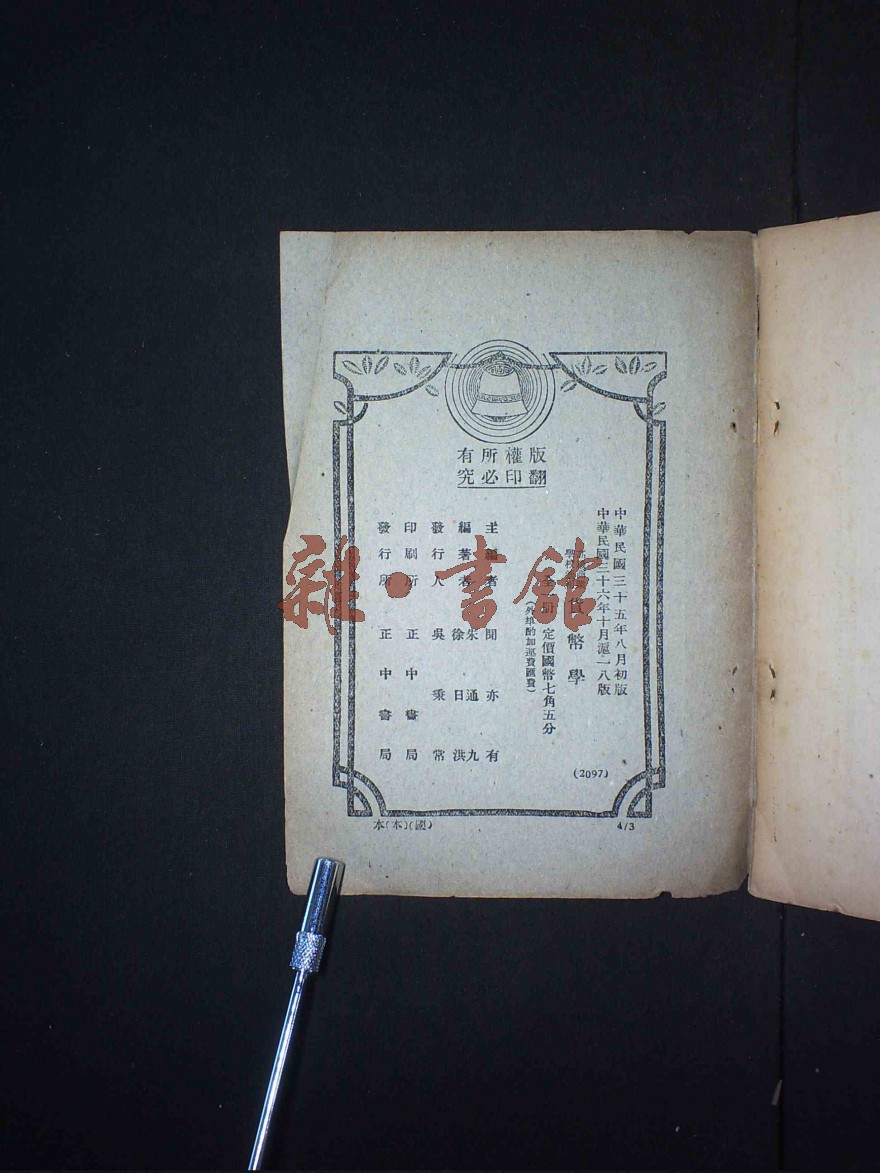 版權所有
翻印必究
中華民國三十五年八月初版
中華民國三十六年十月滬一八版
貨幣學
冊 定價國幣七角五分
(外埠酌加運費匯費)
主編者 聞亦有
編著者 朱通九 徐日洪
發行人 吳秉常
印刷所 正中書局
發行所 正中書局
(2097)
本(本)(國)
4/3
雜·書館